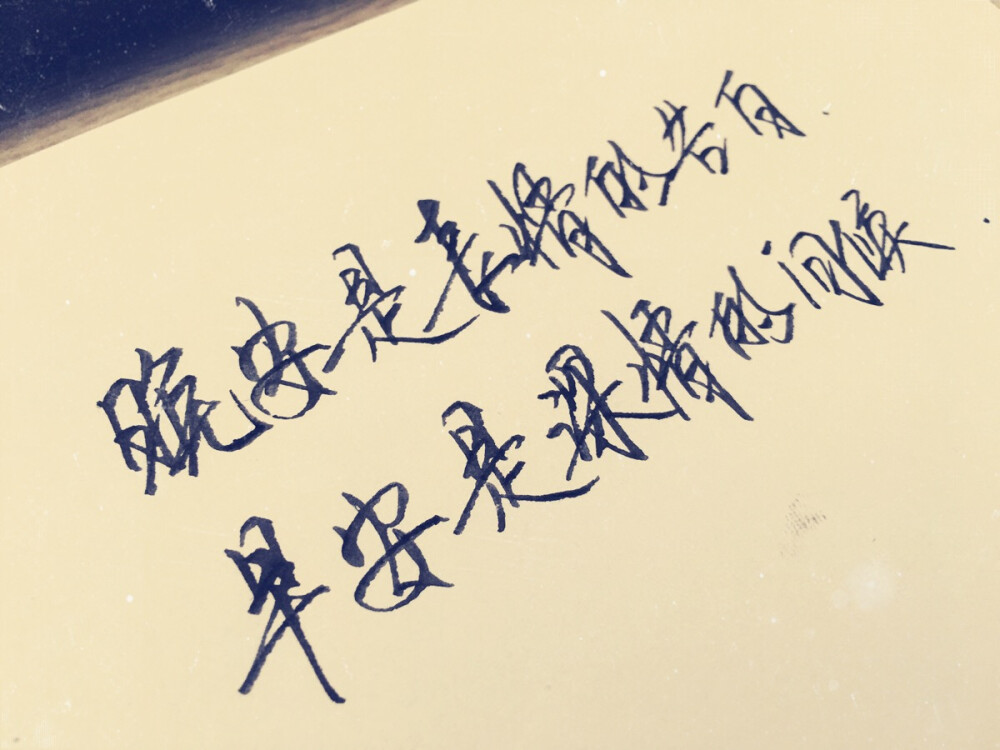 晚安是長情的告白.
早安是深情的问候.